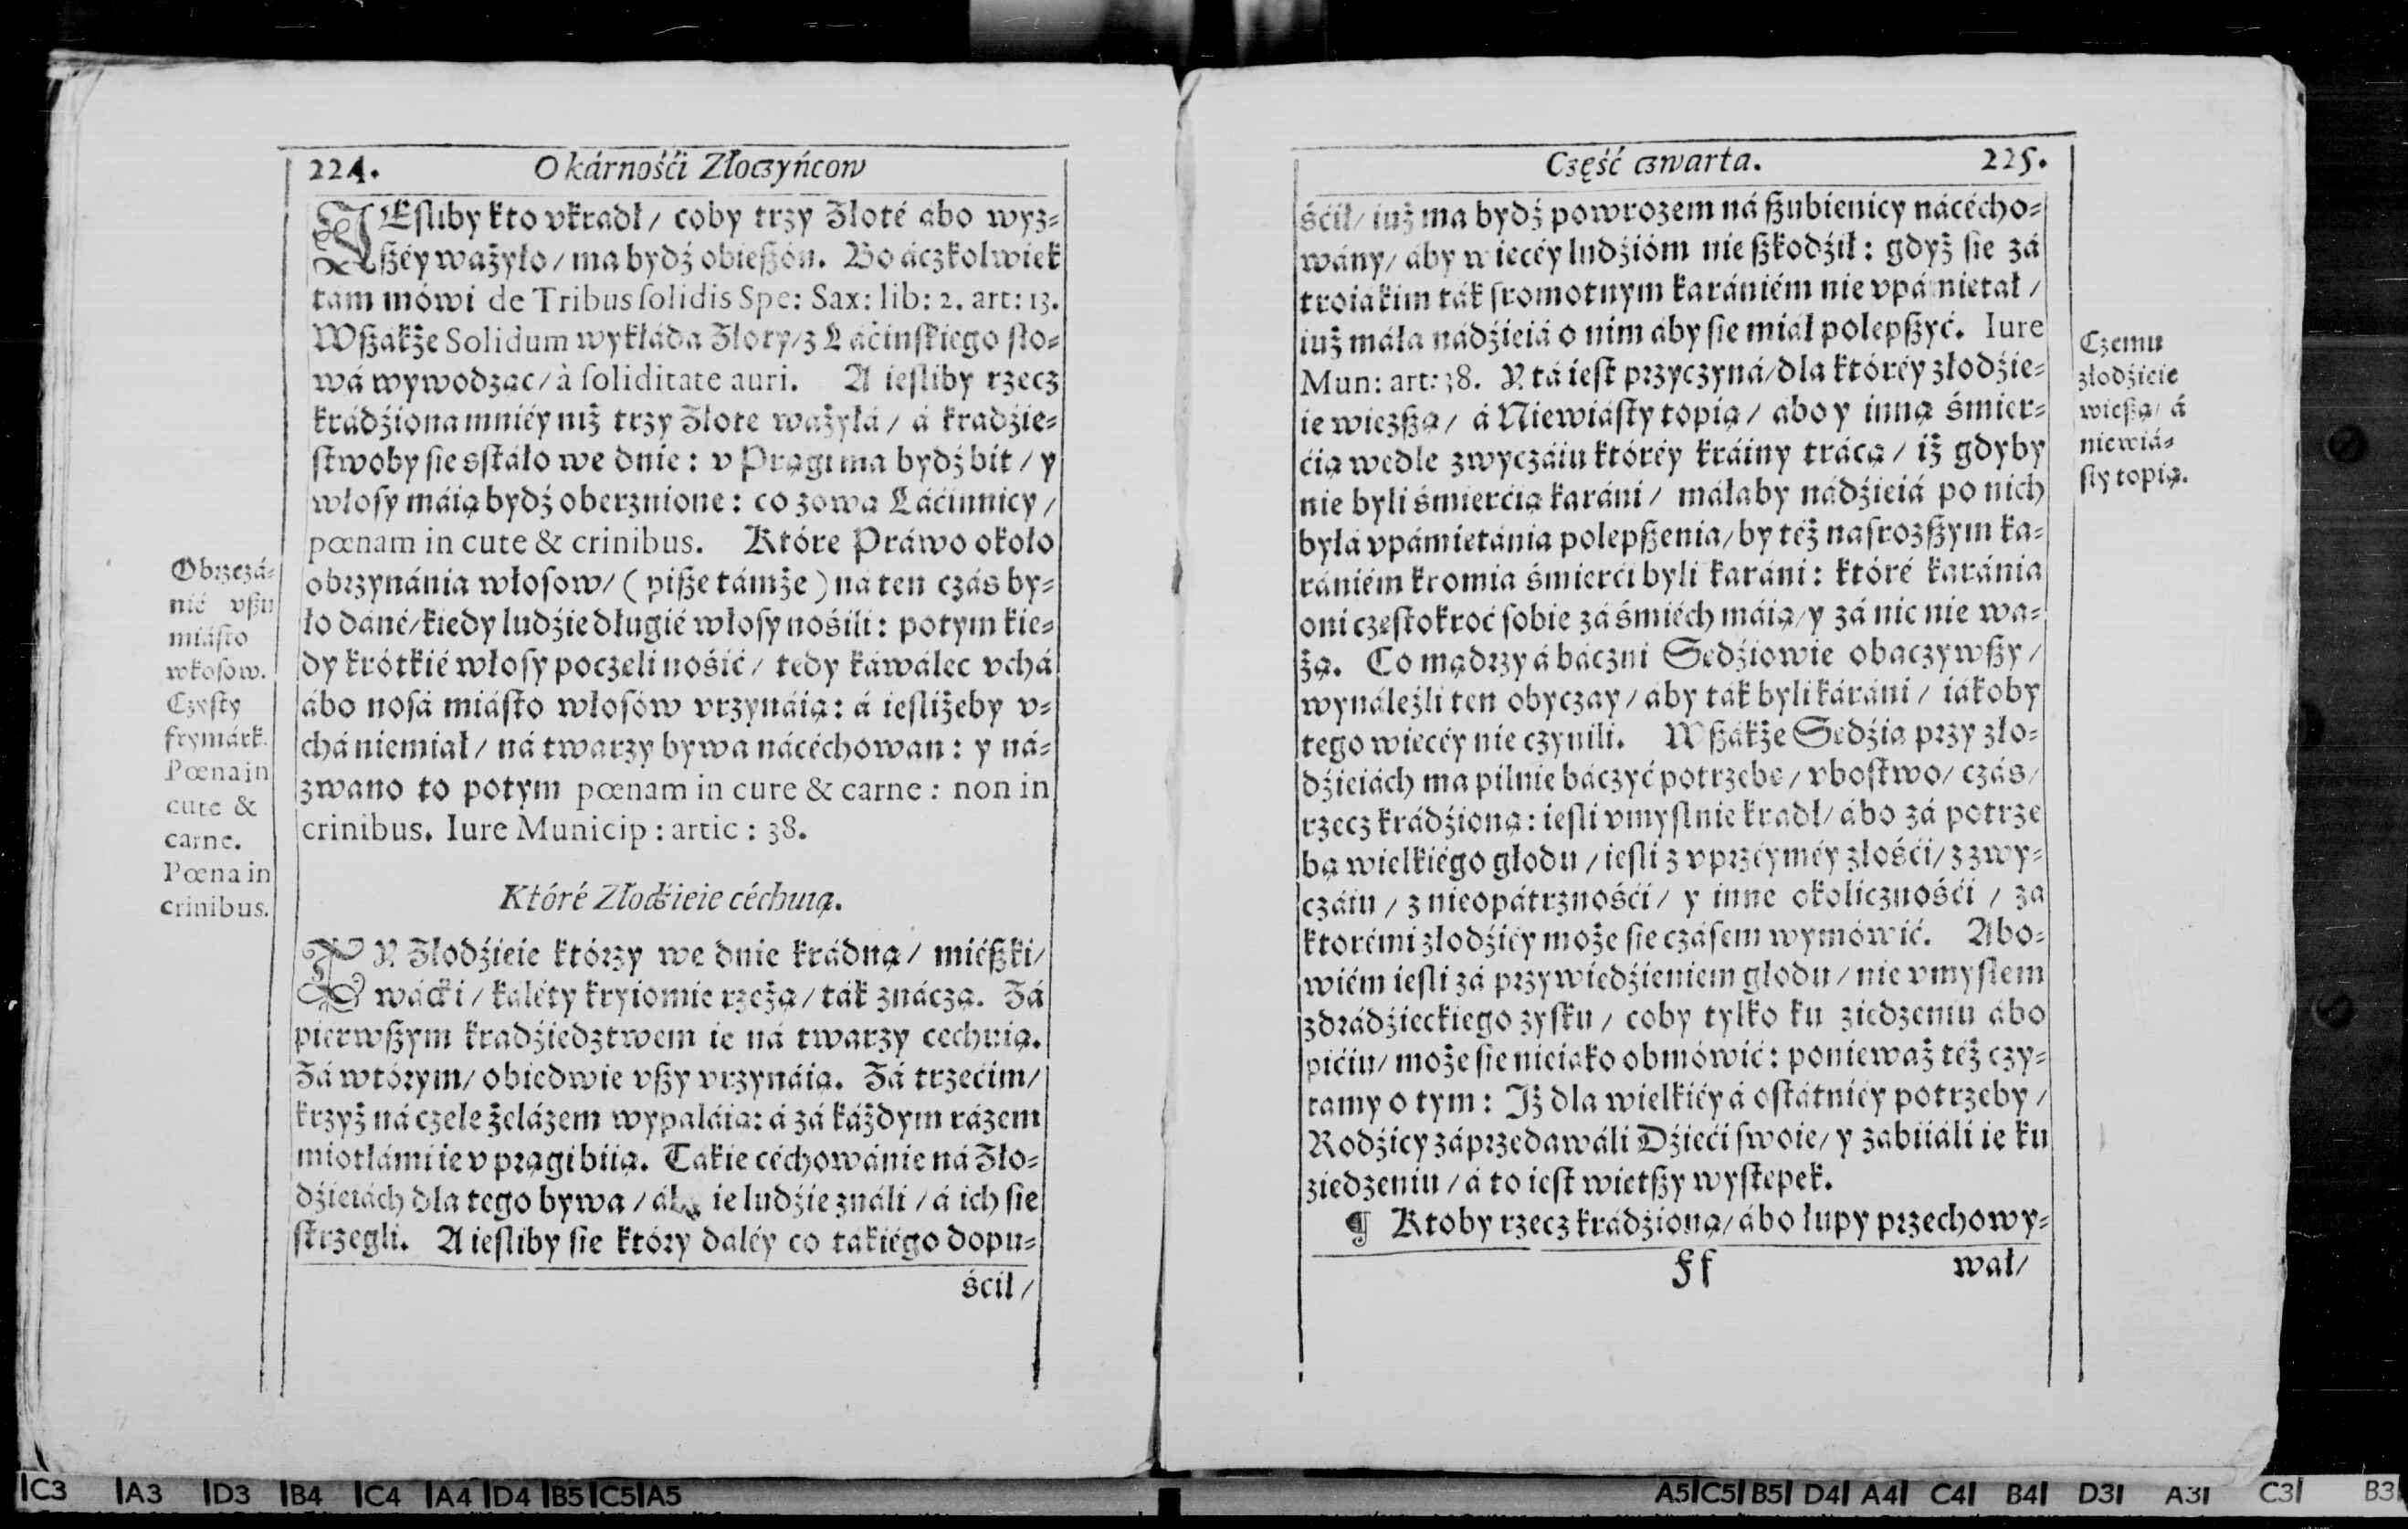 224. O kárnośći Złoczyńcow
JEſliby kto vkradł / coby trzy Złoté ábo wyz-
ßéy ważyło / ma bydź obießón. Bo áczkolwiek
tám mówi de Tribus ſolidis Spe: Sax: lib: 2. art: 13.
Wßákże Solidum wykłáda Złoty / z Łáćinſkiego ſło-
wá wywodząc / à ſoliditate auri. A ieſliby rzecz
krádźiona mniéy niż trzy Złote ważyłá / á kradźie-
ſtwoby ſie sſtáło we dnie : v Pręgi ma bydź bit / y
włoſy máią bydź oberznione : co zową Łáćinnicy /
pœnam in cute & crinibus. Które Práwo około
obrzynánia włoſow / ( piße támże ) ná ten czás by-
ło dáné / kiedy ludźie długié włoſy nośili : potym kie-
dy krótkié włoſy poczeli nośić / tedy káwálec vchá
ábo noſá miáſto włoſów vrzynáią : á ieſliżeby v-
chá niemiał / ná twarzy bywa nácéchowan : y ná-
zwano to potym pœnam in cure & carne : non in
crinibus. Iure Municip : artic : 38.
Obrzezá-
nié vßu
miáſto
wkoſow.
Czyſty
frymárk.
Pœna in
cute &
carne.
Pœna in
crinibus.
Któré Złodźieie céchuią.
TY Złodźieie którzy we dnie krádną / miéßki /
wácki / kaléty kryiomie rzeżą / ták znáczą. Zá
pierwßym kradźiedztwem ie ná twarzy cechuią.
Zá wtórym / obiedwie vßy vrzynáią. Zá trzećim /
krzyż ná czele żelázem wypaláią: á zá káżdym rázem
miotłámi ie v pręgi biią. Takie céchowánie ná Zło-
dźieiách dla tego bywa / áby ie ludźie ználi / á ich ſie
ſtrzegli. A ieſliby ſie który daléy co tákiégo dopu-
śćił /
Część czwarta. 225.
śćił / iuż ma bydź powrozem ná ßubienicy nácécho-
wány / áby wiecéy ludźióm nie ßkodźił : gdyż ſie zá
troiákim ták ſromotnym karániém nie vpámietał /
iuż máła nádźieiá o nim áby ſie miał polepßyć. Iure
Mun: art: 38. Y tá ieſt przyczyná / dla któréy złodźie-
ie wiezßą / á Niewiáſty topią / ábo y inną śmier-
ćią wedle zwyczáiu któréy kráiny trácą / iż gdyby
nie byli śmierćią karáni / máłaby nádźieiá po nich
byłá vpámietánia polepßenia / by téż naſrozßym ka-
rániém kromia śmierći byli karáni : któré karánia
oni czeſtokroć ſobie zá śmiéch máią / y zá nic nie wa-
żą. Co mądrzy á báczni Sedźiowie obaczywßy /
wynáleźli ten obyczay / áby ták byli káráni / iákoby
tego wiecéy nie czynili. Wßákże Sedźia przy zło-
dźieiách ma pilnie báczyć potrzebe / vboſtwo / czás /
rzecz krádźioną : ieſli vmyſlnie kradł / ábo zá potrze
bą wielkiégo głodu / ieſli z vprzéyméy złośći / z zwy-
czáiu / z nieopátrznośći / y inne okolicznośći / za
ktorémi złodźiéy może ſie czáſem wymówić. Abo-
wiém ieſli zá przywiedźieniem głodu / nie vmyſłem
zdrádźieckiego zyſku / coby tylko ku ziedzeniu ábo
pićiu / może ſie nieiáko obmówić : ponieważ téż czy-
tamy o tym : Iż dla wielkiéy á oſtátniéy potrzeby /
Rodźicy záprzedawáli Dźieći ſwoie / y zabiiáli ie ku
ziedzeniu / á to ieſt wietßy wyſtepek.
¶ Ktoby rzecz krádźioną / ábo łupy przechowy-
Ff wał /
Czemu
złodźieie
wießą / á
niewiá-
ſty topią.
C3 A3 D3 B4 C4 A4 D4 B5 C5 A5
A5 C5 B5 D4 A4 C4 B4 D3 A3 C3 B3